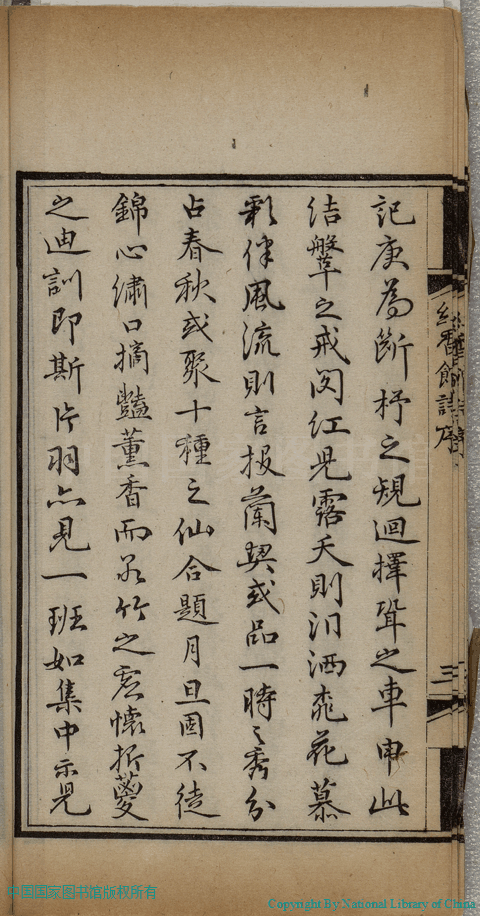 記庚為斷杼之規迴擇聟之車申此
結鞶之戒閔紅見露天則泪洒桃花慕
彩伴風流則言投蘭契或品一時之秀分
占春秋或聚十種之仙合題月旦固不徒
錦心繡口摘豔薰香而若竹之虛懷折蔆
之迪訓即斯片羽亦見一班如集中示兒
繡餘館詩序
三
中国国家图书馆版权所有
Copyright By National Library of China